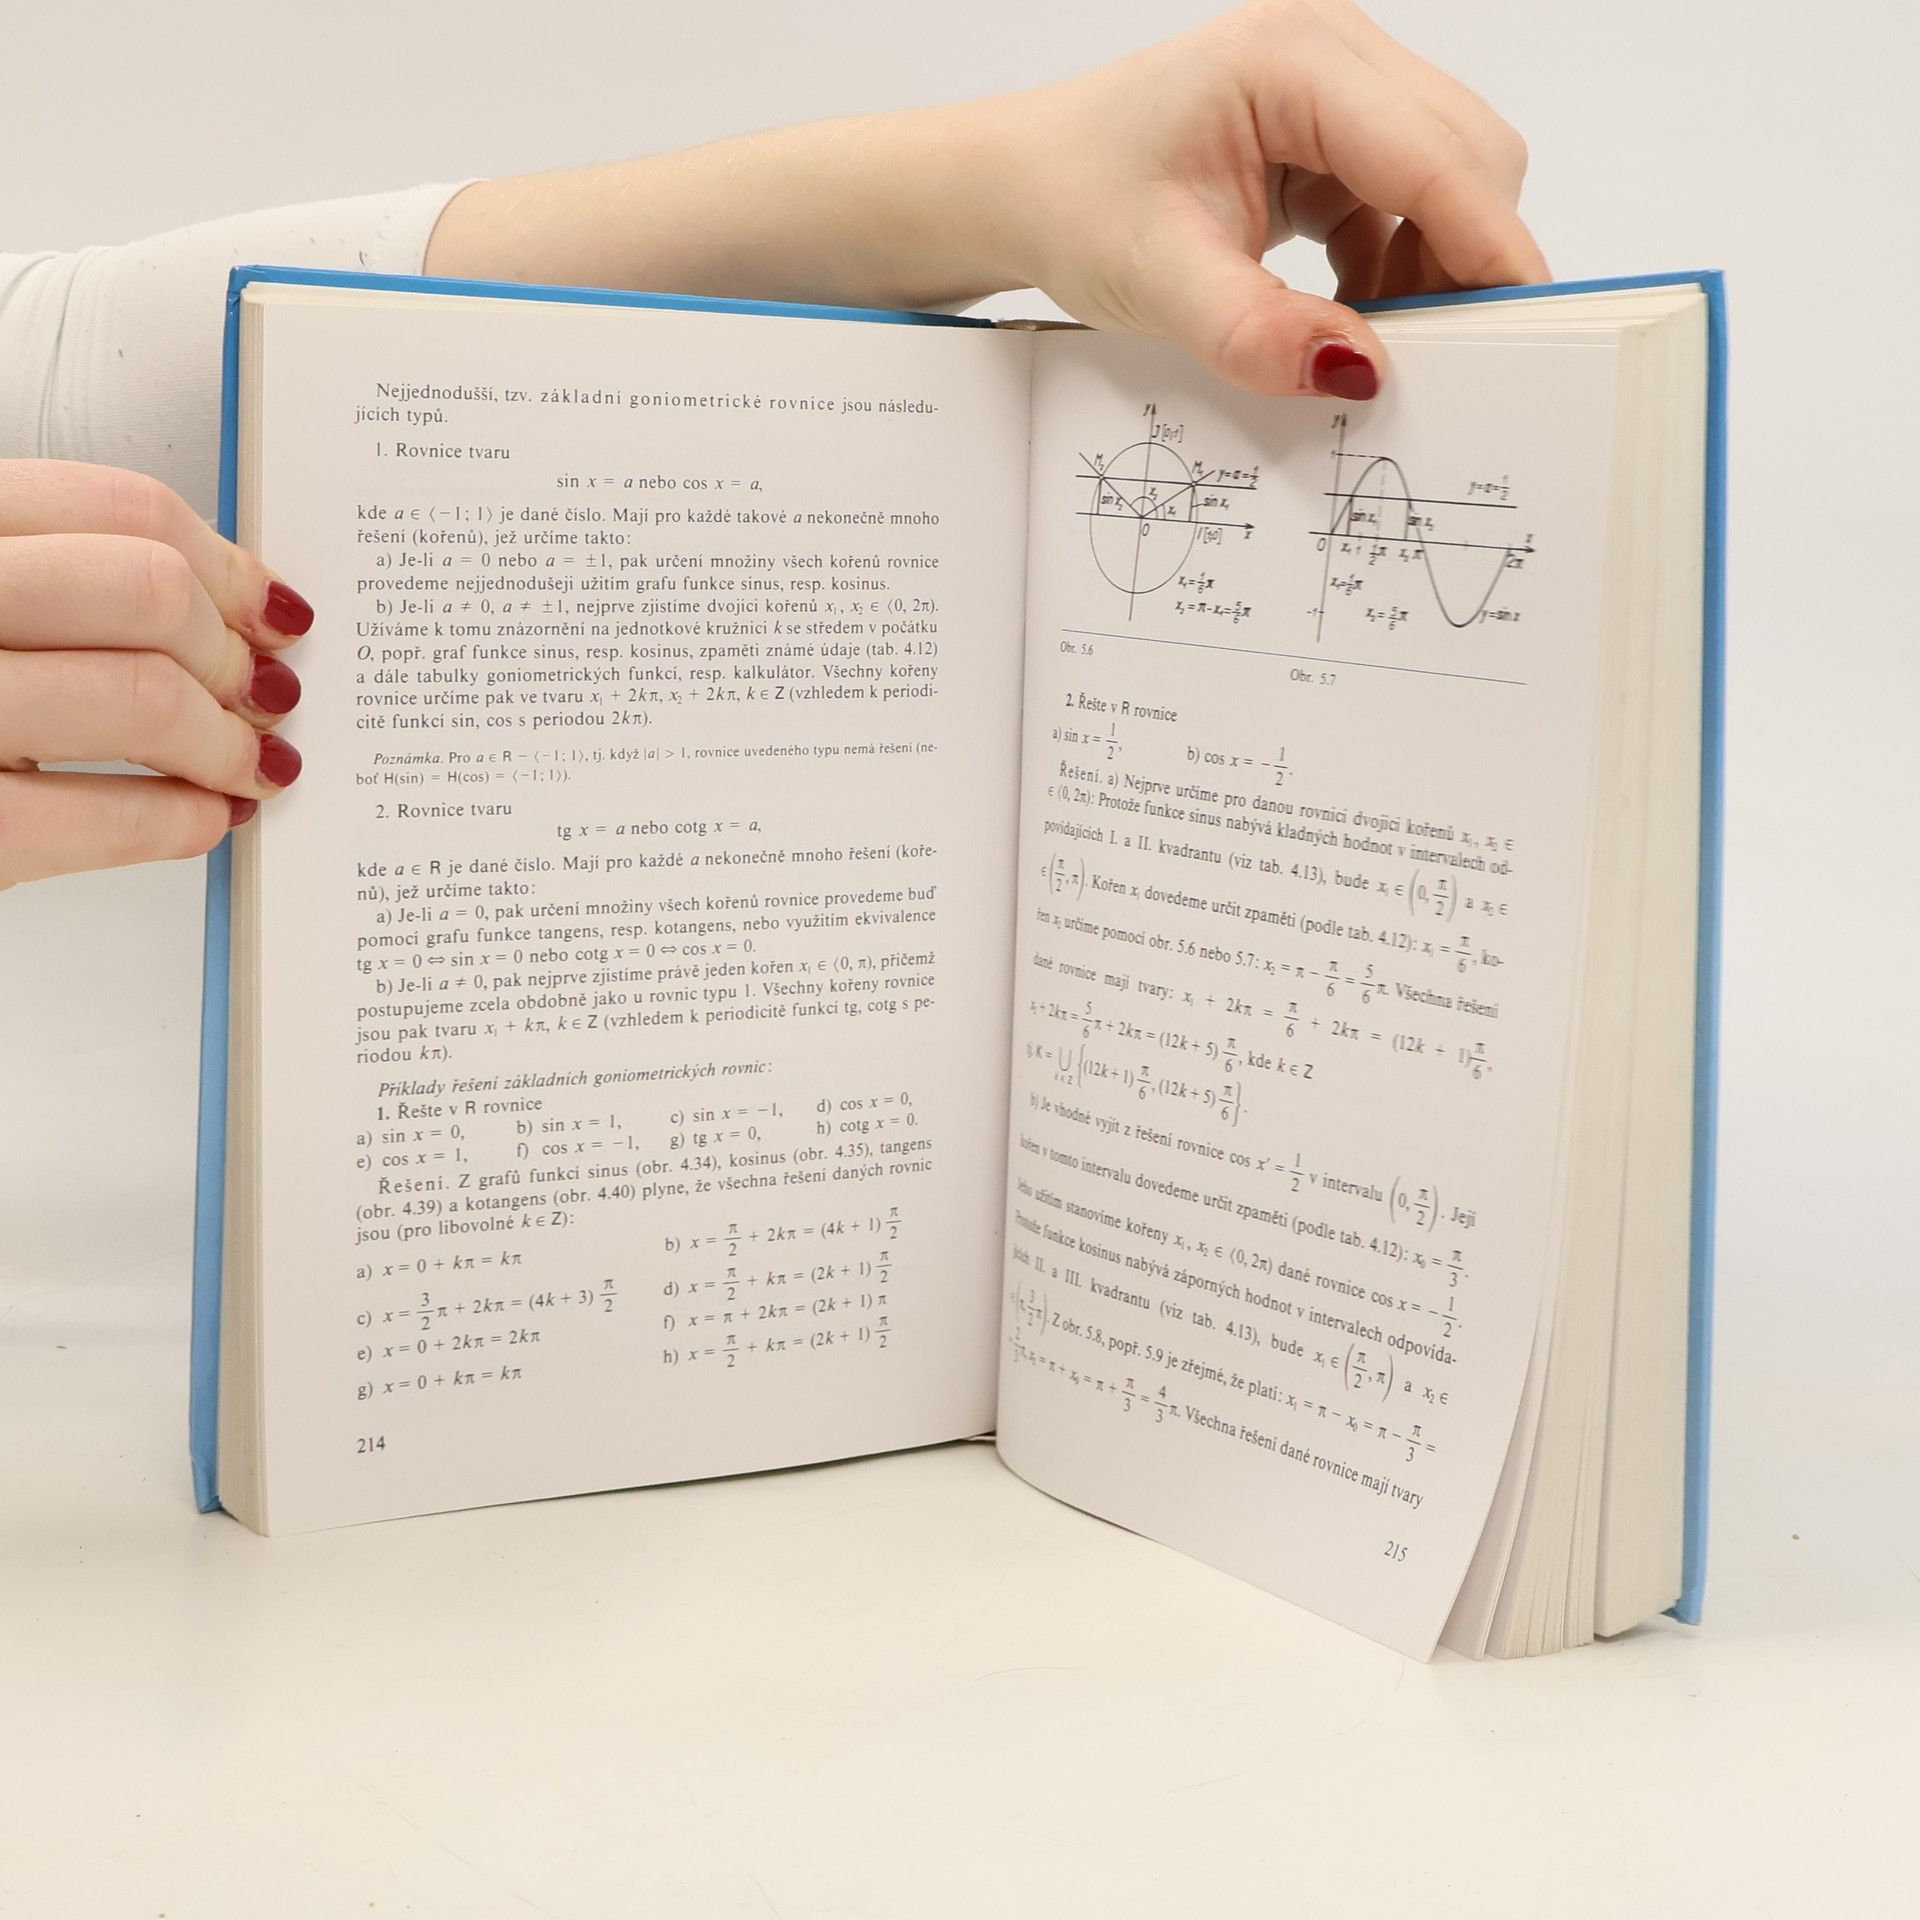 Nejjednodušší, tzv. základní goniometrické rovnice jsou následu-
jících typů.
1. Rovnice tvaru
sin x = a nebo cos x = a,
kde a ∈ ⟨−1; 1⟩ je dané číslo. Mají pro každé takové a nekonečně mnoho
řešení (kořenů), jež určíme takto:
a) Je-li a = 0 nebo a = ±1, pak určení množiny všech kořenů rovnice
provedeme nejjednodušeji užitím grafu funkce sinus, resp. kosinus.
b) Je-li a ≠ 0, a ≠ ±1, nejprve zjistíme dvojici kořenů x₁, x₂ ∈ ⟨0, 2π).
Užíváme k tomu znázornění na jednotkové kružnici k se středem v počátku
O, popř. graf funkce sinus, resp. kosinus, zpaměti známé údaje (tab. 4.12)
a dále tabulky goniometrických funkcí, resp. kalkulátor. Všechny kořeny
rovnice určíme pak ve tvaru x₁ + 2kπ, x₂ + 2kπ, k ∈ Z (vzhledem k periodi-
citě funkcí sin, cos s periodou 2kπ).
Poznámka. Pro a ∈ R − ⟨−1; 1⟩, tj. když |a| > 1, rovnice uvedeného typu nemá řešení (ne-
boť H(sin) = H(cos) = ⟨−1; 1⟩).
2. Rovnice tvaru
tg x = a nebo cotg x = a,
kde a ∈ R je dané číslo. Mají pro každé a nekonečně mnoho řešení (koře-
nů), jež určíme takto:
a) Je-li a = 0, pak určení množiny všech kořenů rovnice provedeme buď
pomocí grafu funkce tangens, resp. kotangens, nebo využitím ekvivalence
tg x = 0 ⇔ sin x = 0 nebo cotg x = 0 ⇔ cos x = 0.
b) Je-li a ≠ 0, pak nejprve zjistíme právě jeden kořen x₁ ∈ ⟨0, π), přičemž
postupujeme zcela obdobně jako u rovnic typu 1. Všechny kořeny rovnice
jsou pak tvaru x₁ + kπ, k ∈ Z (vzhledem k periodicitě funkcí tg, cotg s pe-
riodou kπ).
Příklady řešení základních goniometrických rovnic:
1. Řešte v R rovnice
a) sin x = 0, b) sin x = 1, c) sin x = −1, d) cos x = 0,
e) cos x = 1, f) cos x = −1, g) tg x = 0, h) cotg x = 0.
Řešení. Z grafů funkcí sinus (obr. 4.34), kosinus (obr. 4.35), tangens
(obr. 4.39) a kotangens (obr. 4.40) plyne, že všechna řešení daných rovnic
jsou (pro libovolné k ∈ Z):
a) x = 0 + kπ = kπ b) x = π/2 + 2kπ = (4k + 1) π/2
c) x = 3/2 π + 2kπ = (4k + 3) π/2 d) x = π/2 + kπ = (2k + 1) π/2
e) x = 0 + 2kπ = 2kπ f) x = π + 2kπ = (2k + 1) π
g) x = 0 + kπ = kπ h) x = π/2 + kπ = (2k + 1) π/2
214
y J [0;1] M₂ M₁ y=a=1/2 sin x₂ x₂ x₁ sin x₁ O I [1;0] x
x₁=1/6 π
x₂=π−x₁=5/6 π
Obr. 5.6
y 1 y=a=1/2 sin x₁ sin x₂ 0 x₁ 1 1/2 π x₂ π 2π x
x₁=1/6 π
−1 x₂=5/6 π y=sin x
Obr. 5.7
2. Řešte v R rovnice
a) sin x = 1/2, b) cos x = −1/2.
Řešení. a) Nejprve určíme pro danou rovnici dvojici kořenů x₁, x₂ ∈
∈ ⟨0, 2π): Protože funkce sinus nabývá kladných hodnot v intervalech od-
povídajících I. a II. kvadrantu (viz tab. 4.13), bude x₁ ∈ (0, π/2) a x₂ ∈
∈ (π/2, π). Kořen x₁ dovedeme určit zpaměti (podle tab. 4.12): x₁ = π/6, ko-
řen x₂ určíme pomocí obr. 5.6 nebo 5.7: x₂ = π − π/6 = 5/6 π. Všechna řešení
dané rovnice mají tvary: x₁ + 2kπ = π/6 + 2kπ = (12k + 1) π/6,
x₂ + 2kπ = 5/6 π + 2kπ = (12k + 5) π/6, kde k ∈ Z
tj. K = ⋃ k ∈ Z {(12k + 1) π/6, (12k + 5) π/6}.
b) Je vhodné vyjít z řešení rovnice cos x′ = 1/2 v intervalu (0, π/2). Její
kořen v tomto intervalu dovedeme určit zpaměti (podle tab. 4.12): x₀ = π/3.
Jeho užitím stanovíme kořeny x₁, x₂ ∈ ⟨0, 2π) dané rovnice cos x = −1/2.
Protože funkce kosinus nabývá záporných hodnot v intervalech odpovída-
jících II. a III. kvadrantu (viz tab. 4.13), bude x₁ ∈ (π/2, π) a x₂ ∈
∈ (π, 3/2 π). Z obr. 5.8, popř. 5.9 je zřejmé, že platí: x₁ = π − x₀ = π − π/3 =
= 2/3 π, x₂ = π + x₀ = π + π/3 = 4/3 π. Všechna řešení dané rovnice mají tvary
215